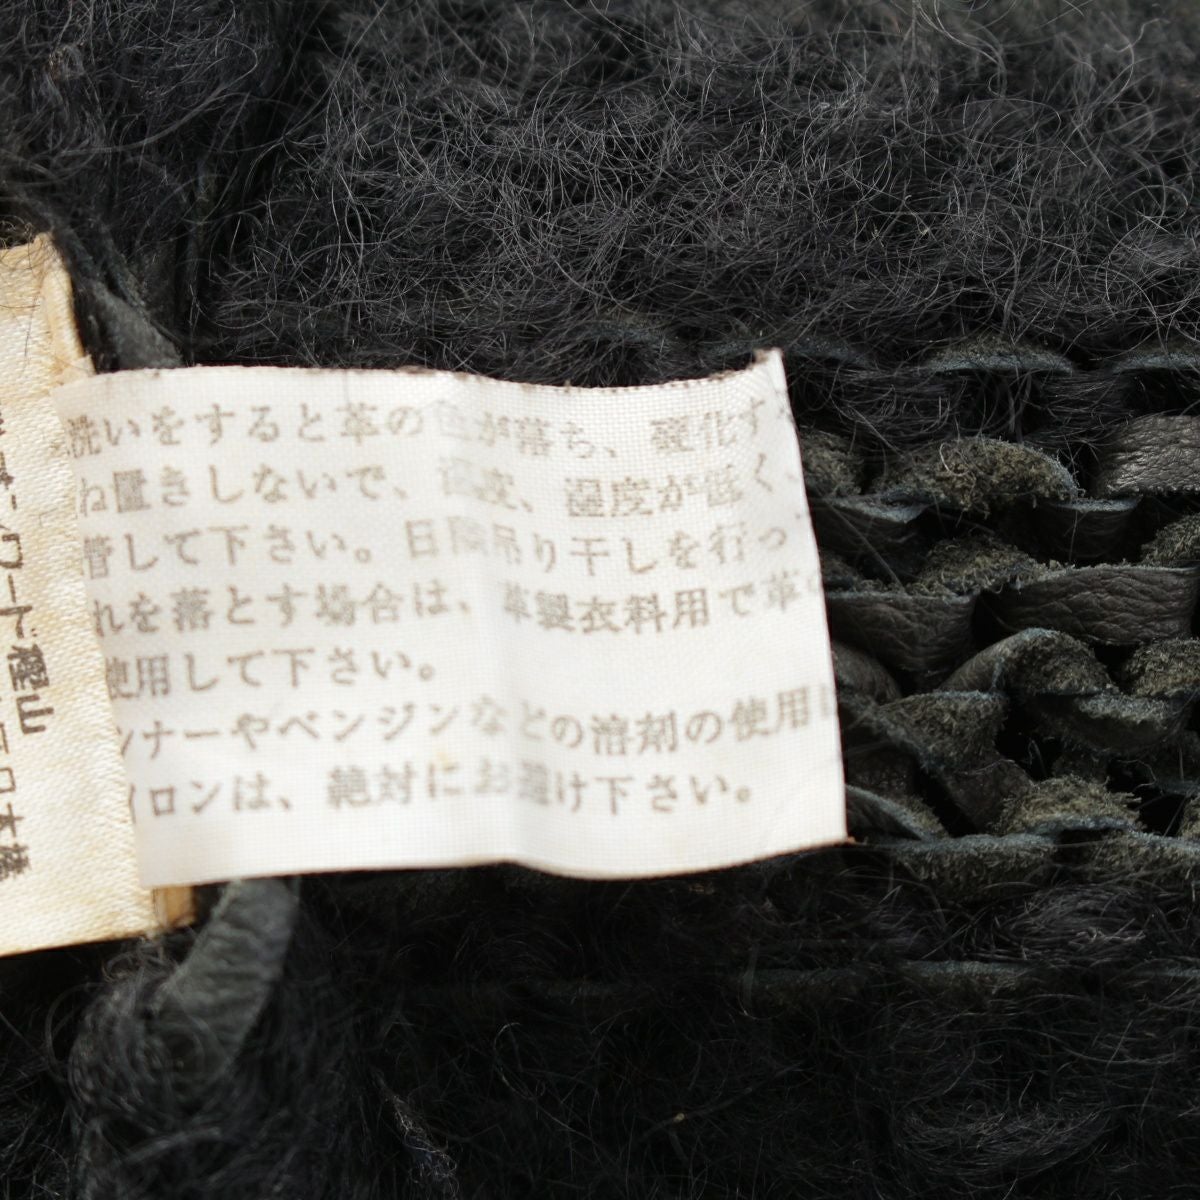 洗いをすると革の色が落ち、硬化す
ね置きしないで、温度、湿度が低く、
管して下さい。日陰吊り干しを行っ
れを落とす場合は、革製衣料用で革
使用して下さい。
ンナーやベンジンなどの溶剤の使用は
イロンは、絶対にお避け下さい。
ワード樫山